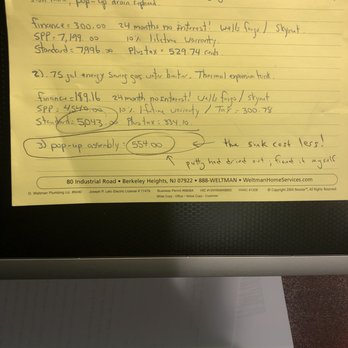 pop-up drain
finance = 300.00 24 months no interest! wells fargo / skynet
SPP = 7,199.00 10% lifetime warranty.
Standard = 7,996.00 Plus tax = 529.74 cents.
2). 75 gal energy saving gas water heater. Thermal expansion tank.
finance = 189.16 24 month no interest! wells fargo / skynet
SPP: 4540.00 10% lifetime warranty / Tax = 300.78
Standard = 5,043 Plus tax = 334.10
3) pop-up assembly = 554.00 ← the sink cost less!
↑ putty had dried out, fixed it myself
80 Industrial Road • Berkeley Heights, NJ 07922 • 888-WELTMAN • WeltmanHomeServices.com